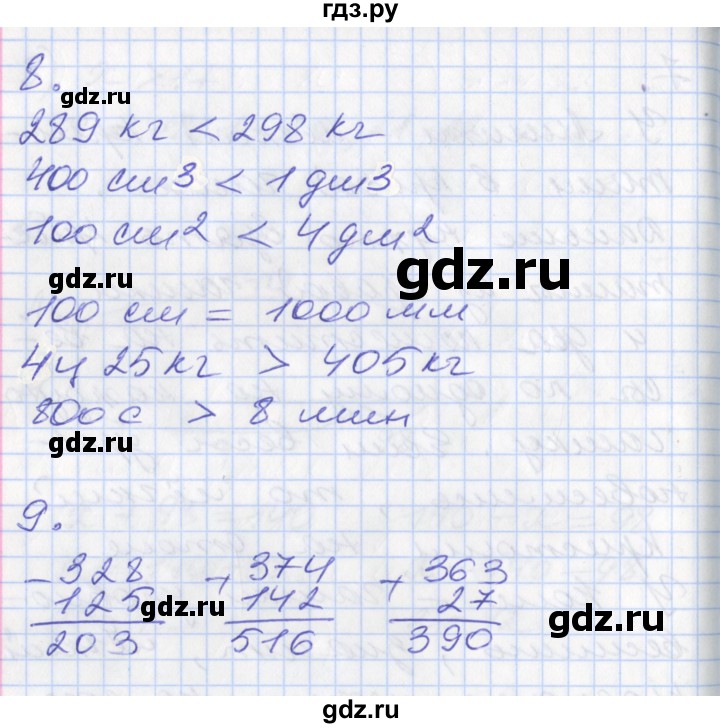 гдз.ру
8.
gdz.ru
289 кг < 298 кг
400 см3 < 1 дм3
100 см2 < 4 дм2
gdz.ru
gdz.ru
100 см = 1000 мм
4ц 25 кг > 405 кг
800 с > 8 мин
gdz.ru
9.
- 328 + 374 + 363
125 142 27
gdz.ru
gdz.ru
203 516 390
gdz.ru